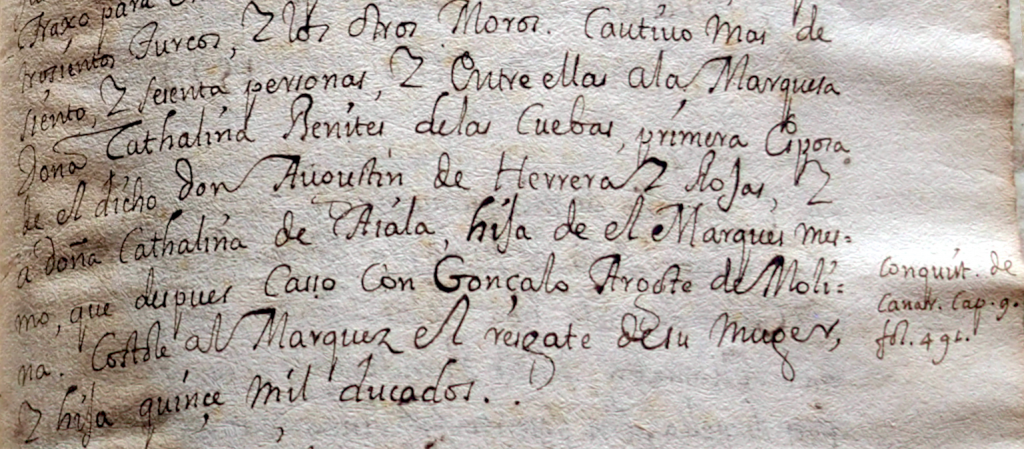 Traxo para
trosientos Turcos, Y los otros Moros. Cautiuo mas de
siento, Y sesenta personas, Y Entre ellas ala Marquesa
Doña Cathalina Benites delas Cuebas, primera Esposa
de el dicho don Augustin de Herrera Y Rojas, Y
a doña Cathalina de Aiala, hija de el Marques mes=
mo, que despues Casso Con Gonçalo Argote de Moli=
na. Costole al Marquez el resgate de su muger,
Y hija quinçe mil ducados.
Conquist. de
Canar. Cap. 9.
fol. 49.